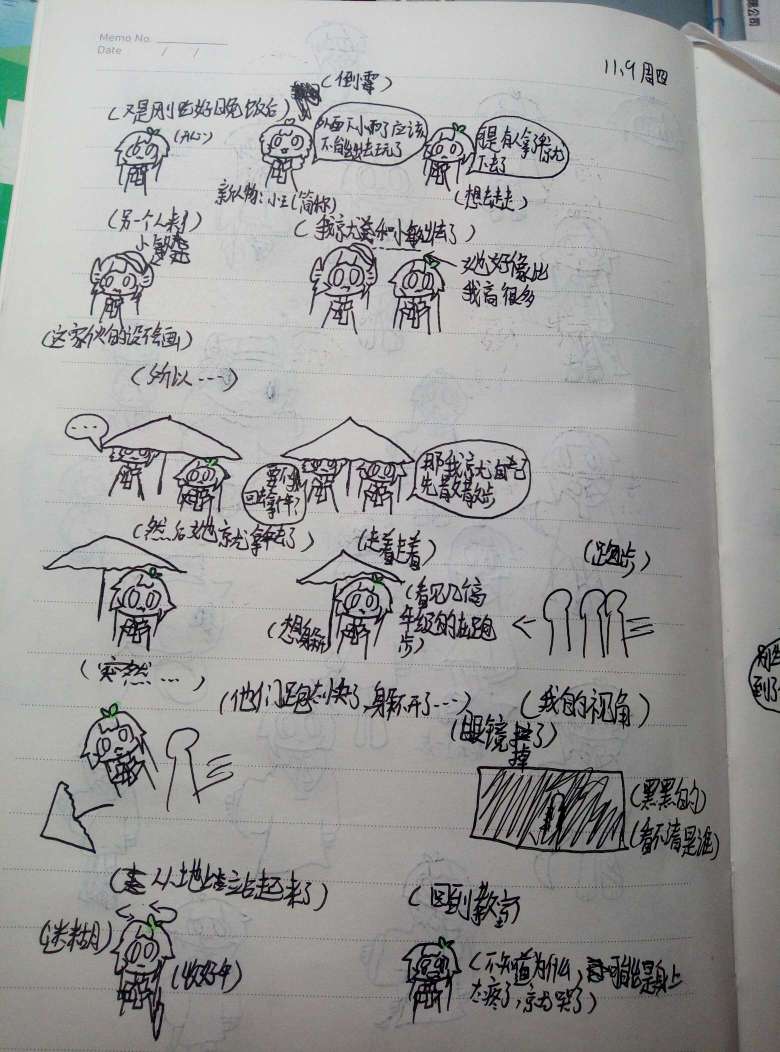 Memo No.
Date / /
11.9 周四
(倒霉)
(又是刚吃好晚饭后)
(开心)
外面下小雨了应该
不能出去玩了
但是有人拿了伞就
下去了
新人物:小王(简称)
(想去走走)
(另一个人来了)
小敏
(我就要和小敏出去了)
她好像比
我高很多
(这家伙的设绘画)
(所以····)
···
要不我
回去拿伞?
那我就自己
先散散步
(然后她就拿伞去了)
(走着走着)
(跑步)
(看见几个高
年级的在跑
步)
(想躲)
(突然···)
(他们跑太快了,躲不开了···)
(我的视角)
(眼镜掉了)
(黑黑的)
(看不清是谁)
(从地上站起来了)
(迷糊)
(收好伞)
(回到教室)
(不知道为什么,可能是身上
太疼了,就哭了)
限公司
到了